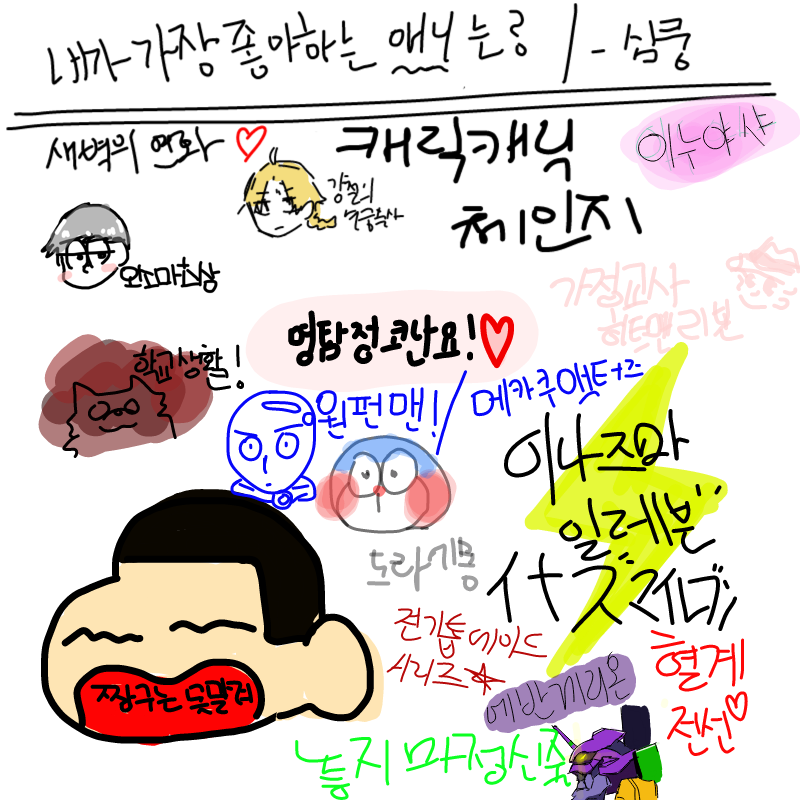 내가 가장 좋아하는 애니는? / - 심쿵
새벽의 연화
캐릭캐릭
체인지
이누야샤
강철의
연금술사
오소마츠상
가정교사
히트맨 리본
명탐정코난요!
학교생활!
원펀맨!
메카쿠액터즈
이나즈마
일레븐
도라에몽
전기톱데이드
시리즈
짱구는 못말려
에반게리온
혈계
전선
놓지마 정신줄